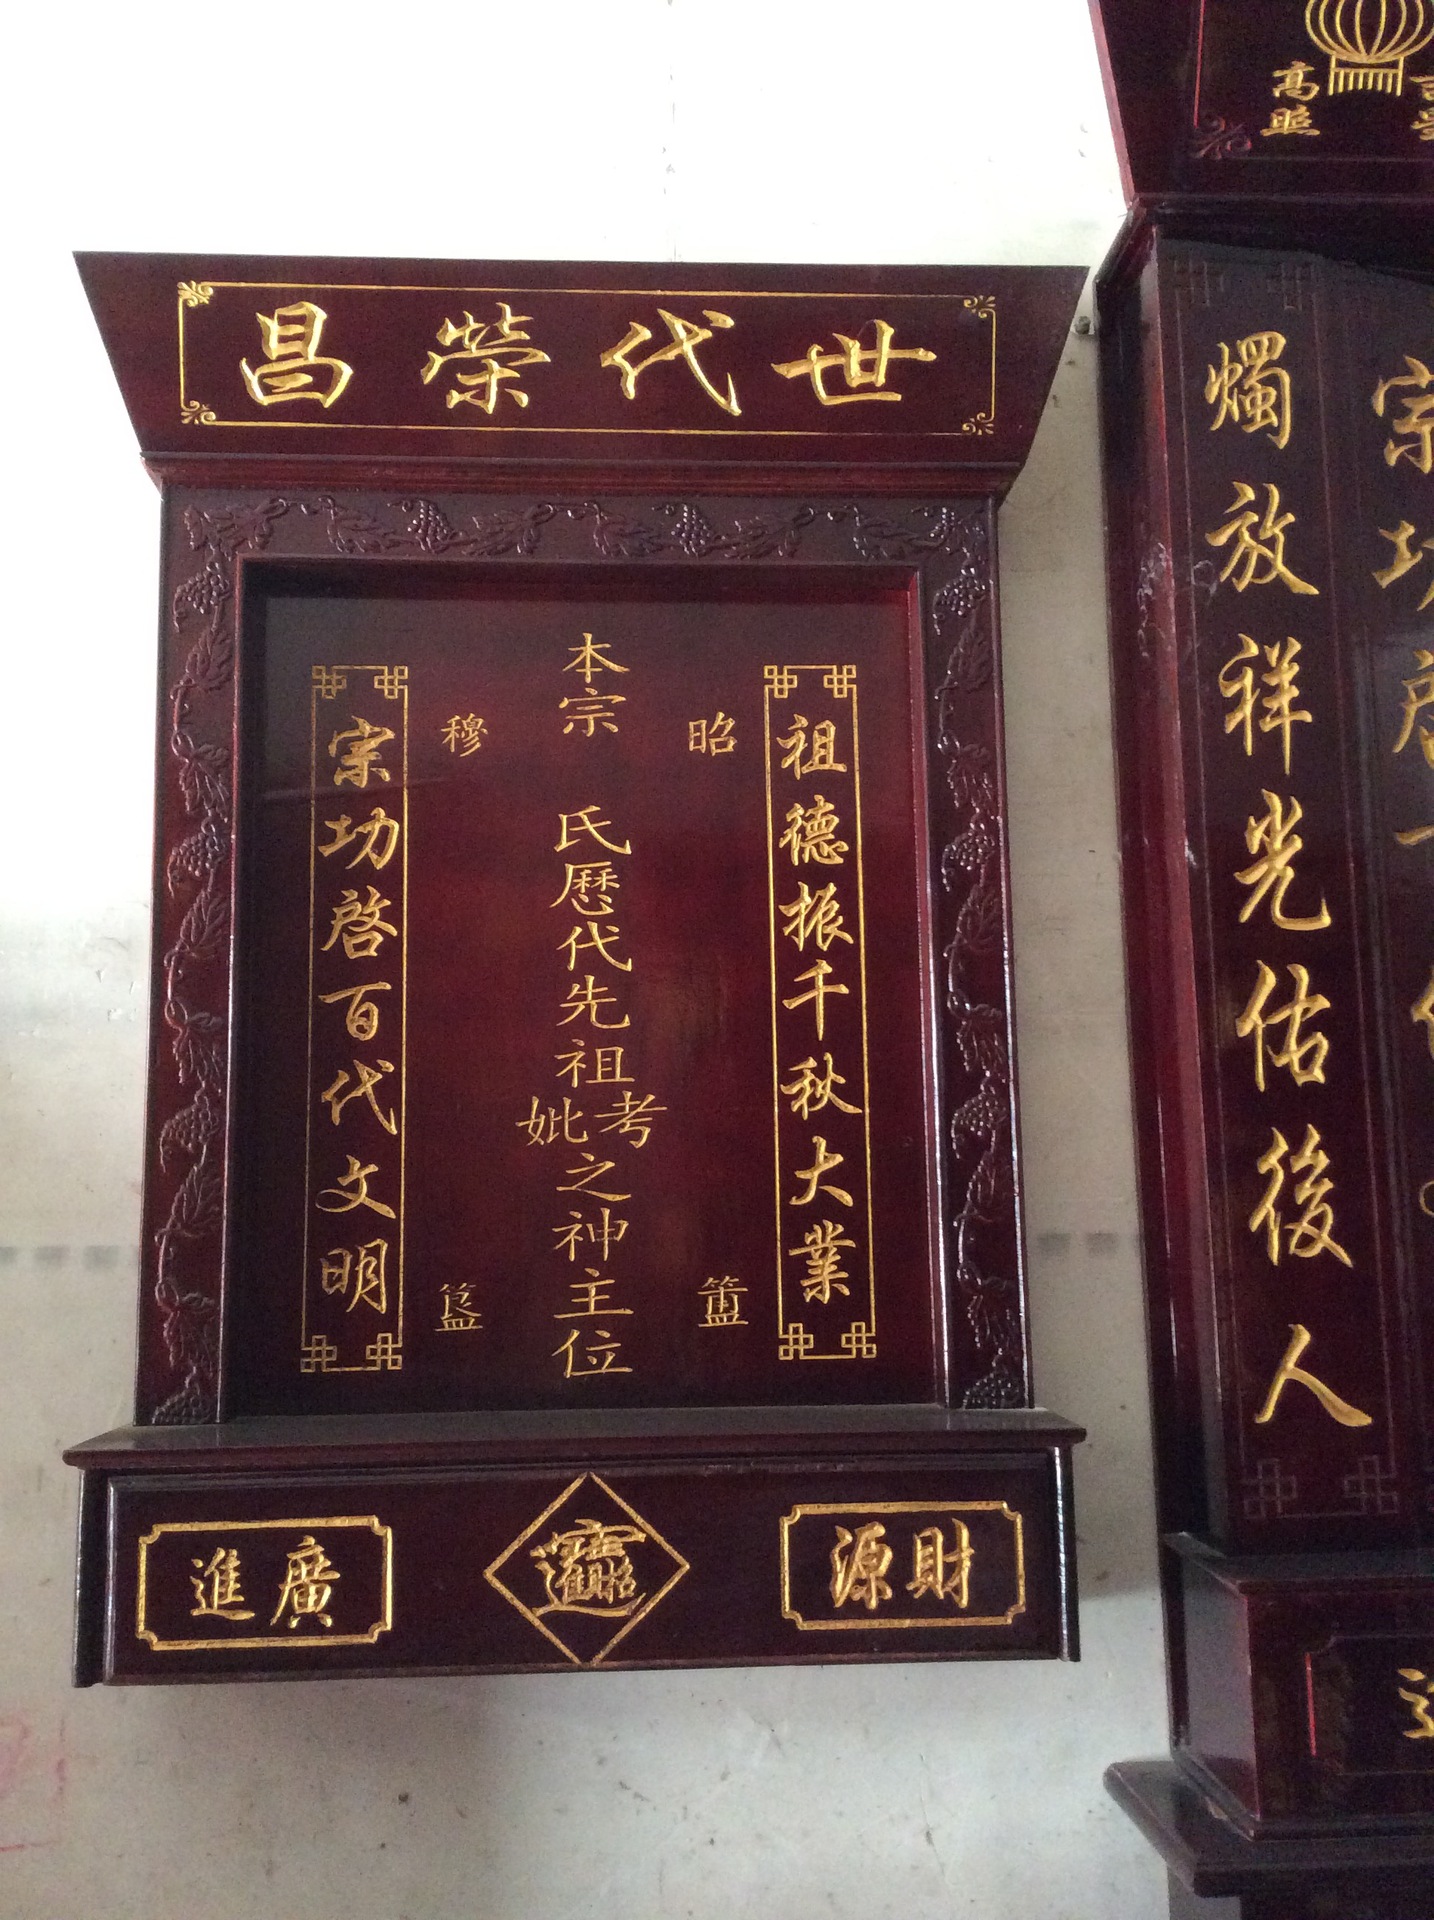 世代榮昌
祖德振千秋大業
昭
簠
本宗 氏歷代先祖考妣之神主位
穆
簋
宗功啓百代文明
財源
招財進寶
廣進
高照
宗功啓百
燭放祥光佑後人